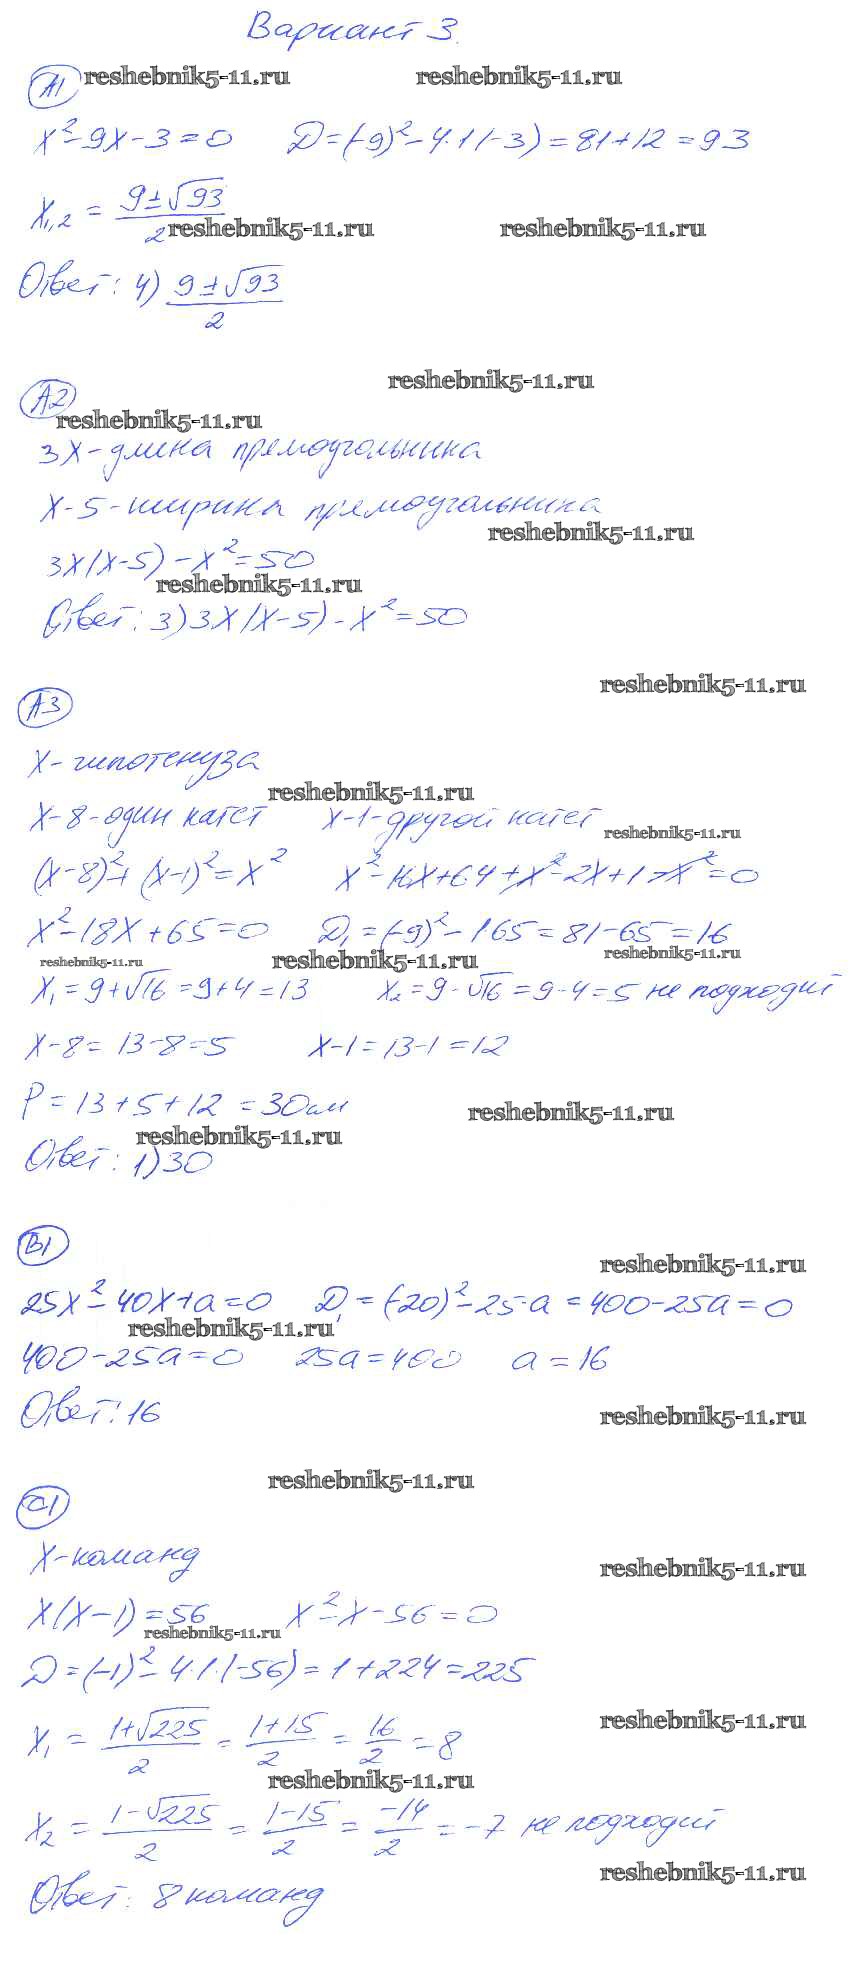 Вариант 3.
А1 reshebnik5-11.ru reshebnik5-11.ru
x²-9x-3=0 D=(-9)²-4·1·(-3)=81+12=93
x₁,₂ = (9±√93)/2
reshebnik5-11.ru reshebnik5-11.ru
Ответ: 4) (9±√93)/2
reshebnik5-11.ru
А2
reshebnik5-11.ru
3x-длина прямоугольника
x-5-ширина прямоугольника
reshebnik5-11.ru
3x(x-5)-x²=50
reshebnik5-11.ru
Ответ: 3) 3x(x-5)-x²=50
reshebnik5-11.ru
А3
x-гипотенуза
reshebnik5-11.ru
x-8-один катет x-1-другой катет
reshebnik5-11.ru
(x-8)²+(x-1)²=x² x²-16x+64+x²-2x+1-x²=0
x²-18x+65=0 D₁=(-9)²-1·65=81-65=16
reshebnik5-11.ru reshebnik5-11.ru reshebnik5-11.ru
x₁=9+√16=9+4=13 x₂=9-√16=9-4=5 не подходит
x-8=13-8=5 x-1=13-1=12
P=13+5+12=30см
reshebnik5-11.ru
reshebnik5-11.ru
Ответ: 1) 30
В1
reshebnik5-11.ru
25x²-40x+a=0 D₁=(-20)²-25·a=400-25a=0
reshebnik5-11.ru
400-25a=0 25a=400 a=16
Ответ: 16
reshebnik5-11.ru
reshebnik5-11.ru
С1
x-команд
reshebnik5-11.ru
x(x-1)=56 x²-x-56=0
reshebnik5-11.ru
D=(-1)²-4·1·(-56)=1+224=225
x₁ = (1+√225)/2 = (1+15)/2 = 16/2 = 8
reshebnik5-11.ru
reshebnik5-11.ru
x₂ = (1-√225)/2 = (1-15)/2 = -14/2 = -7 не подходит
reshebnik5-11.ru
Ответ: 8 команд